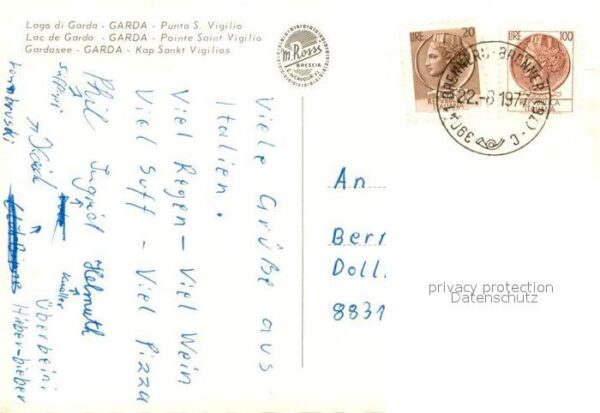 Lago di Garda - GARDA - Punta S. Vigilio
Lac de Garda - GARDA - Pointe Saint Vigilio
Gardasee - GARDA - Kap Sankt Vigilios
m. Rossi
BRESCIA
LIRE 20
LIRE 100
39041 BRENNERO-BRENNER (BZ)
22.-8 1977
Viele Grüße aus
Italien.
Viel Regen - Viel Wein
Viel Suff - Viel Pizza
Phil Ingrid Helmuth
Suffini
Knaller
Überbeini
Hieber-bieber
An
Berr
Doll
8831
privacy protection
Datenschutz